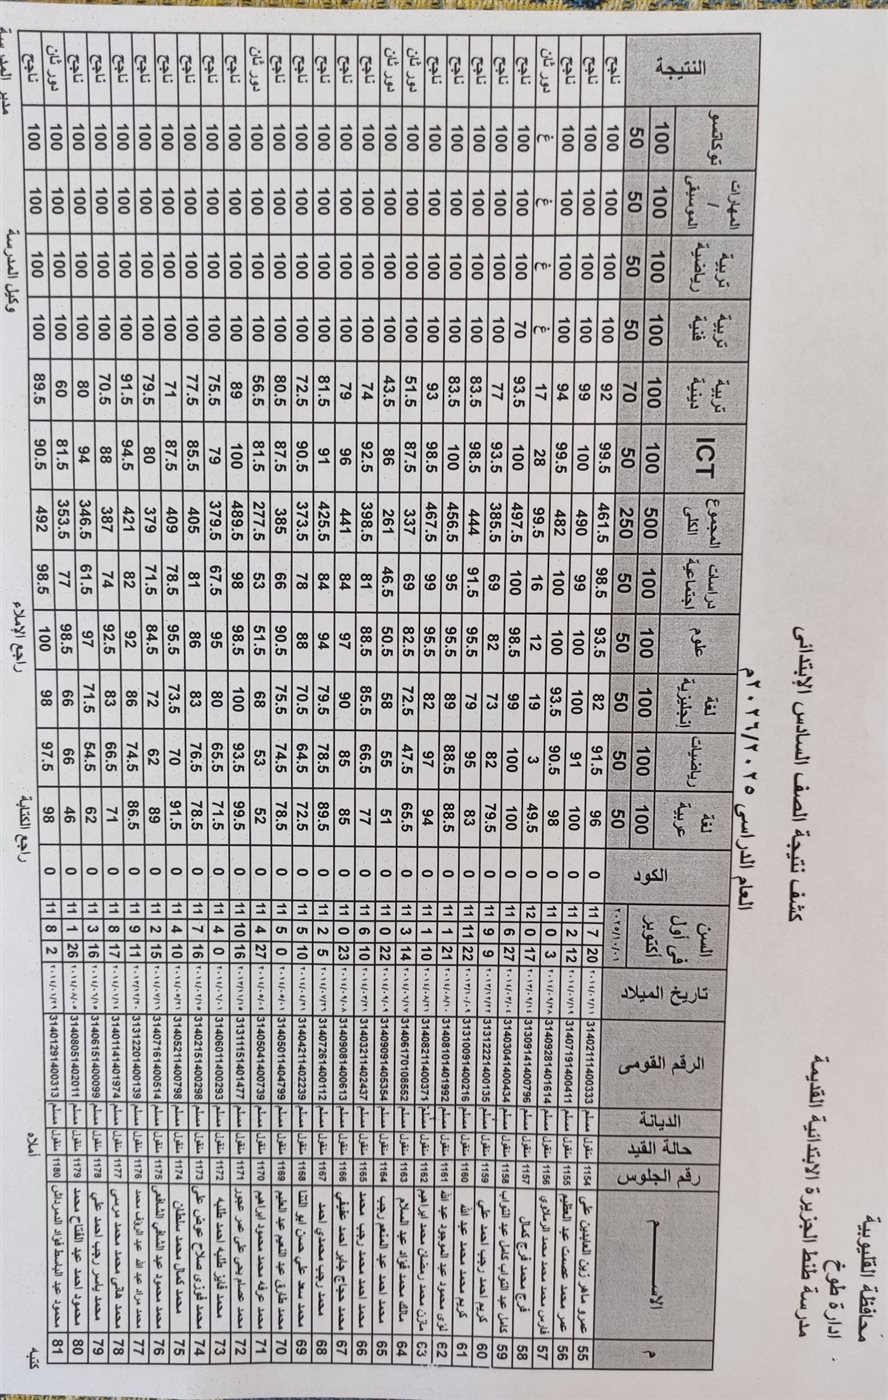 محافظة القليوبية
ادارة طوخ
مدرسة طنط الجزيرة الابتدائية القديمة
كشف نتيجة الصف السادس الإبتدائى
العام الدراسى ٢٠٢٦/٢٠٢٥م
م الاســـم رقم الجلوس حالة القيد الديانة الرقم القومى تاريخ الميلاد السن فى أول أكتوبر الكود لغة عربية رياضيات لغة إنجليزية علوم دراسات اجتماعية المجموع الكلى ICT تربية دينية تربية فنية تربية رياضية المهارات / الموسيقى توكاتسو النتيجة
100 100 100 100 100 500 100 100 100 100 100 100
50 50 50 50 50 250 50 70 50 50 50 50
55 عمرو ماهر زين العابدين على 1154 منقول مسلم 31402111400333 20 7 11 0 96 91.5 82 93.5 98.5 461.5 99.5 92 100 100 100 100 ناجح
56 عمر محمد عصمت عبد العظيم 1155 منقول مسلم 31407191400411 12 2 11 0 100 91 100 100 99 490 100 99 100 100 100 100 ناجح
57 فارس محمد محمد الرملاوي 1156 منقول مسلم 31409281401614 3 0 11 0 98 90.5 93.5 100 100 482 99.5 94 100 100 100 100 ناجح
58 فرج محمد فرج كمال 1157 منقول مسلم 31309141400796 17 0 12 0 49.5 3 19 12 16 99.5 28 17 غ غ غ غ دور ثان
59 كامل عبد التواب كامل عبد التواب 1158 منقول مسلم 31403041400434 27 6 11 0 100 100 99 98.5 100 497.5 100 93.5 70 100 100 100 ناجح
60 كريم احمد رجب احمد علي 1159 منقول مسلم 31312221400135 9 9 11 0 79.5 82 73 82 69 385.5 93.5 77 100 100 100 100 ناجح
61 كريم محمد محمد عبد الله 1160 منقول مسلم 31310091400216 22 11 11 0 83 95 79 95.5 91.5 444 98.5 83.5 100 100 100 100 ناجح
62 لؤى محمود عبد الموجود عبد الله 1161 منقول مسلم 31408101401992 21 1 11 0 88.5 88.5 89 95.5 95 456.5 100 83.5 100 100 100 100 ناجح
63 مازن محمد رمضان محمد ابراهيم 1162 منقول مسلم 31408211400371 10 1 11 0 94 97 82 95.5 99 467.5 98.5 93 100 100 100 100 ناجح
64 مالك محمد فؤاد عبد السلام 1163 منقول مسلم 31406170108552 14 3 11 0 65.5 47.5 72.5 82.5 69 337 87.5 51.5 100 100 100 100 دور ثان
65 محمد احمد عبد المنعم رجب 1164 منقول مسلم 31409091405354 22 0 11 0 51 55 58 50.5 46.5 261 86 43.5 100 100 100 100 دور ثان
66 محمد احمد محمد رجب محمد 1165 منقول مسلم 31403211402437 10 6 11 0 77 66.5 85.5 88.5 81 398.5 92.5 74 100 100 100 100 ناجح
67 محمد حجاج جابر احمد عفيفي 1166 منقول مسلم 31409081400613 23 0 11 0 85 85 90 97 84 441 96 79 100 100 100 100 ناجح
68 محمد رجب محمدى احمد 1167 منقول مسلم 31407261400112 5 2 11 0 89.5 78.5 79.5 94 84 425.5 91 81.5 100 100 100 100 ناجح
69 محمد سعد علي حسن ابو الثنا 1168 منقول مسلم 31404211402239 10 5 11 0 72.5 64.5 70.5 88 78 373.5 90.5 72.5 100 100 100 100 ناجح
70 محمد طارق عبد النعيم عبد العليم 1169 منقول مسلم 31405011404799 0 5 11 0 78.5 74.5 75.5 90.5 66 385 87.5 80.5 100 100 100 100 ناجح
71 محمد عرفه محمد محمود ابراهيم 1170 منقول مسلم 31405041400739 27 4 11 0 52 53 68 51.5 53 277.5 81.5 56.5 100 100 100 100 دور ثان
72 محمد عصام يحى على عمر عجور 1171 منقول مسلم 31311151401477 16 10 11 0 99.5 93.5 100 98.5 98 489.5 100 89 100 100 100 100 ناجح
73 محمد فايز طلبه احمد طلبه 1172 منقول مسلم 31406011400293 0 4 11 0 71.5 65.5 80 95 67.5 379.5 79 75.5 100 100 100 100 ناجح
74 محمد فوزى صلاح عوض على 1173 منقول مسلم 31402151400298 16 7 11 0 78.5 76.5 83 86 81 405 85.5 77.5 100 100 100 100 ناجح
75 محمد كمال محمد سلطان 1174 منقول مسلم 31405211400798 10 4 11 0 91.5 70 73.5 95.5 78.5 409 87.5 71 100 100 100 100 ناجح
76 محمد محمود عبد الشافي الشافعى 1175 منقول مسلم 31407161400514 15 2 11 0 89 62 72 84.5 71.5 379 80 79.5 100 100 100 100 ناجح
77 محمد مراد عبد الله عبد الروف محمد 1176 منقول مسلم 31312201400139 11 9 11 0 86.5 74.5 86 92 82 421 94.5 91.5 100 100 100 100 ناجح
78 محمد هانى محمد محمد مرسى 1177 منقول مسلم 31401141401974 17 8 11 0 71 66.5 83 92.5 74 387 88 70.5 100 100 100 100 ناجح
79 محمد ياسر رجب احمد علي 1178 منقول مسلم 31406151400099 16 3 11 0 62 54.5 71.5 97 61.5 346.5 94 80 100 100 100 100 ناجح
80 محمود احمد عبد الفتاح محمد 1179 منقول مسلم 31408051402011 26 1 11 0 46 66 66 98.5 77 353.5 81.5 60 100 100 100 100 دور ثان
81 محمود عبد الباسط فؤاد الدمرداش 1180 منقول مسلم 31401291400313 2 8 11 0 98 97.5 98 100 98.5 492 90.5 89.5 100 100 100 100 ناجح
كتبه املاه راجع الكتابة راجع الإملاء وكيل المدرسة مدير المدرسة